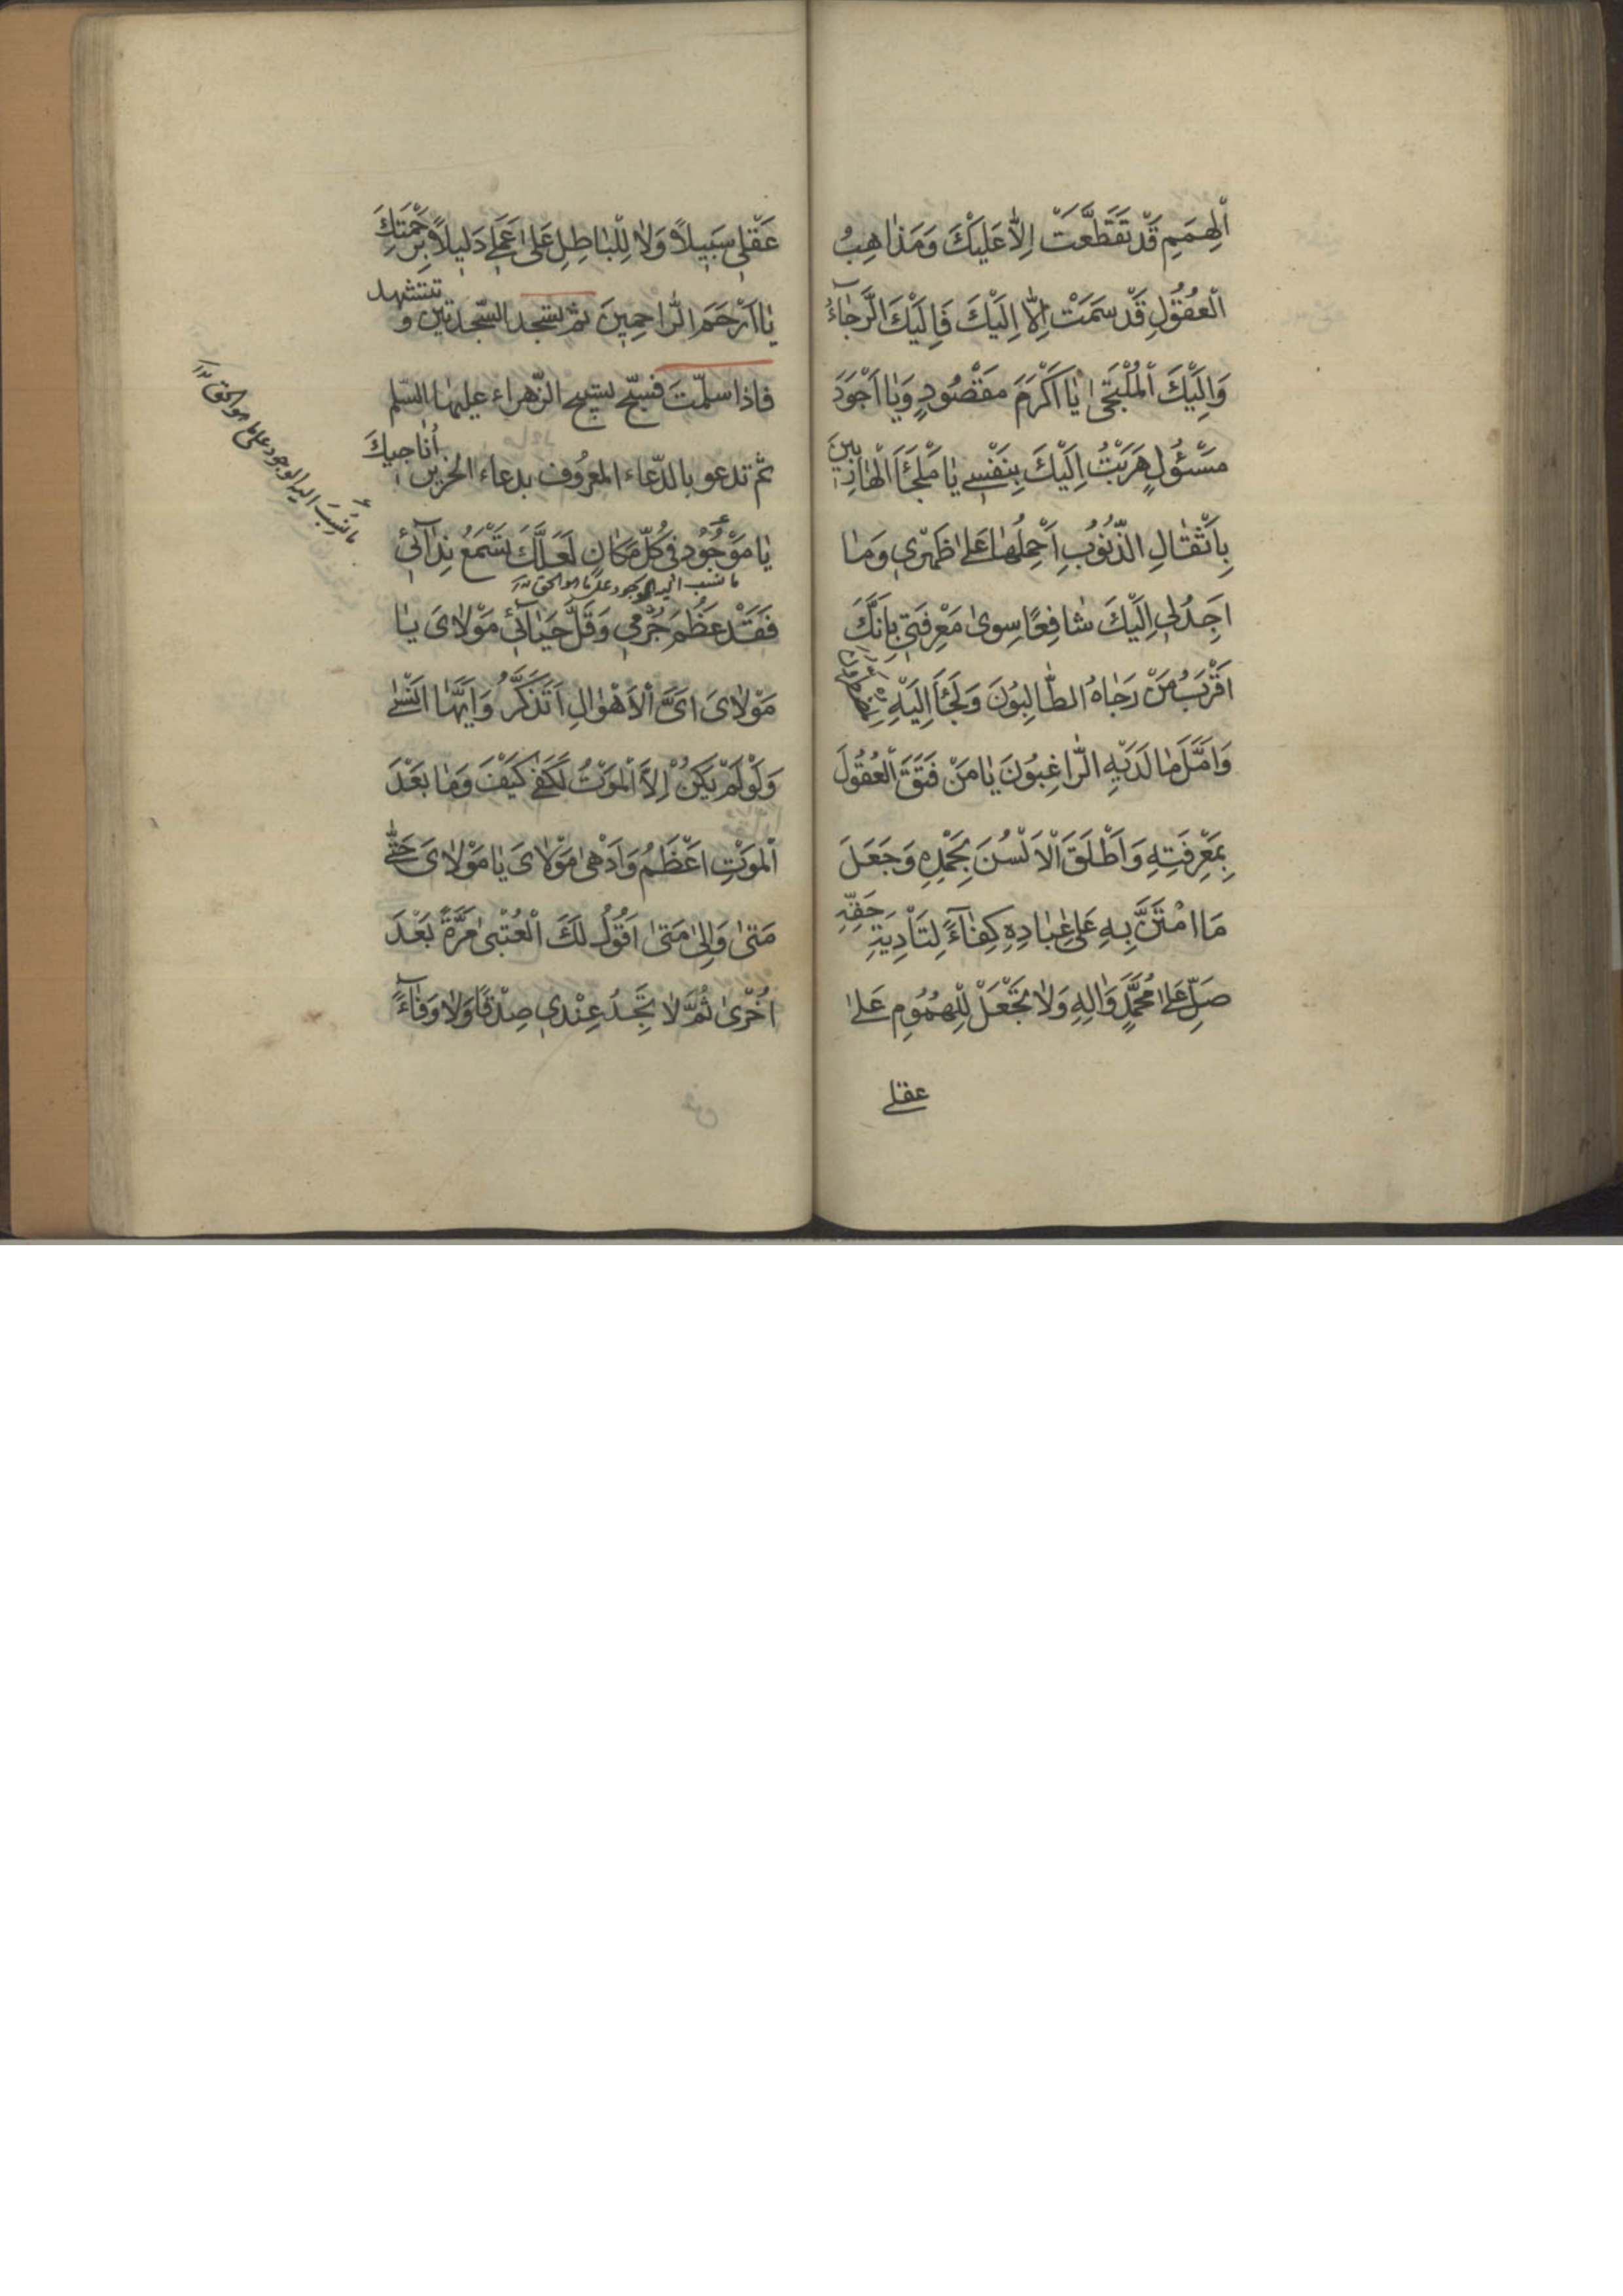 اَلْهِمَمِ قَدْ تَقَطَّعَتْ اِلّاٰ عَلَيْكَ وَمَذاٰهِبُ
الْعُقُولِ قَدْ سَمَتْ اِلّاٰ اِلَيْكَ فَاِلَيْكَ الرَّجآٰءُ
وَاِلَيْكَ الْمُلْتَجىٰ يٰا اَكْرَمَ مَقْصُودٍ وَيٰا اَجْوَدَ
مَسْئُولٍ هَرَبْتُ اِلَيْكَ بِنَفْسي يٰا مَلْجَأَ الْهٰارِبينَ
بِاَثْقٰالِ الذُّنُوبِ اَحْمِلُهٰا عَلىٰ ظَهْري وَمٰا
اَجِدُ لي اِلَيْكَ شٰافِعًا سِوىٰ مَعْرِفَتي بِاَنَّكَ
اَقْرَبُ مَنْ رَجٰاهُ الطّٰالِبُونَ وَلَجَأَ اِلَيْهِ
وَاَمَّلَ مٰا لَدَيْهِ الرّٰاغِبُونَ يٰا مَنْ فَتَقَ الْعُقُولَ
بِمَعْرِفَتِهِ وَاَطْلَقَ الْاَلْسُنَ بِحَمْدِهِ وَجَعَلَ
مَا امْتَنَّ بِهِ عَلىٰ عِبٰادِهِ كِفٰآٰءً لِتَأْدِيَةِ حَقِّهِ
صَلِّ عَلىٰ مُحَمَّدٍ وَاٰلِهِ وَلاٰ تَجْعَلْ لِلْهُمُومِ عَلىٰ
عقلي
عَقْلي سَبيلاً وَلاٰ لِلْبٰاطِلِ عَلىٰ عَمَلي دَليلاً بِرَحْمَتِكَ
يٰا اَرْحَمَ الرّٰاحِمينَ ثم تسجد السّجدتين و تتشهد
فاذا سلّمتَ فسبّح تسبيح الزّهراء عليها السّلم
ثم تدعو بالدّعاء المعرُوف بدعاء الحزين اُناجيكَ
يٰا مَوْجُودُ في كُلِّ مَكٰانٍ لَعَلَّكَ تَسْمَعُ نِدٰآئي
ما نسب اليه الوجود على ما هو الحق
فَقَدْ عَظُمَ جُرْمي وَقَلَّ حَيٰآئي مَوْلاٰىَ يٰا
مَوْلاٰىَ اَىَّ الْاَهْوٰالِ اَتَذَكَّرُ وَاَيَّهٰا اَنْسىٰ
وَلَوْ لَمْ يَكُنْ اِلاَّ الْمَوْتُ لَكَفىٰ كَيْفَ وَمٰا بَعْدَ
الْمَوْتِ اَعْظَمُ وَاَدْهىٰ مَوْلاٰىَ يٰا مَوْلاٰىَ حَتّىٰ
مَتىٰ وَاِلىٰ مَتىٰ اَقُولُ لَكَ الْعُتْبىٰ مَرَّةً بَعْدَ
اُخْرىٰ ثُمَّ لاٰ تَجِدُ عِنْدي صِدْقًا وَلاٰ وَفٰآءً
ما نُسِبَ اليه الوجود على ما هو الحق